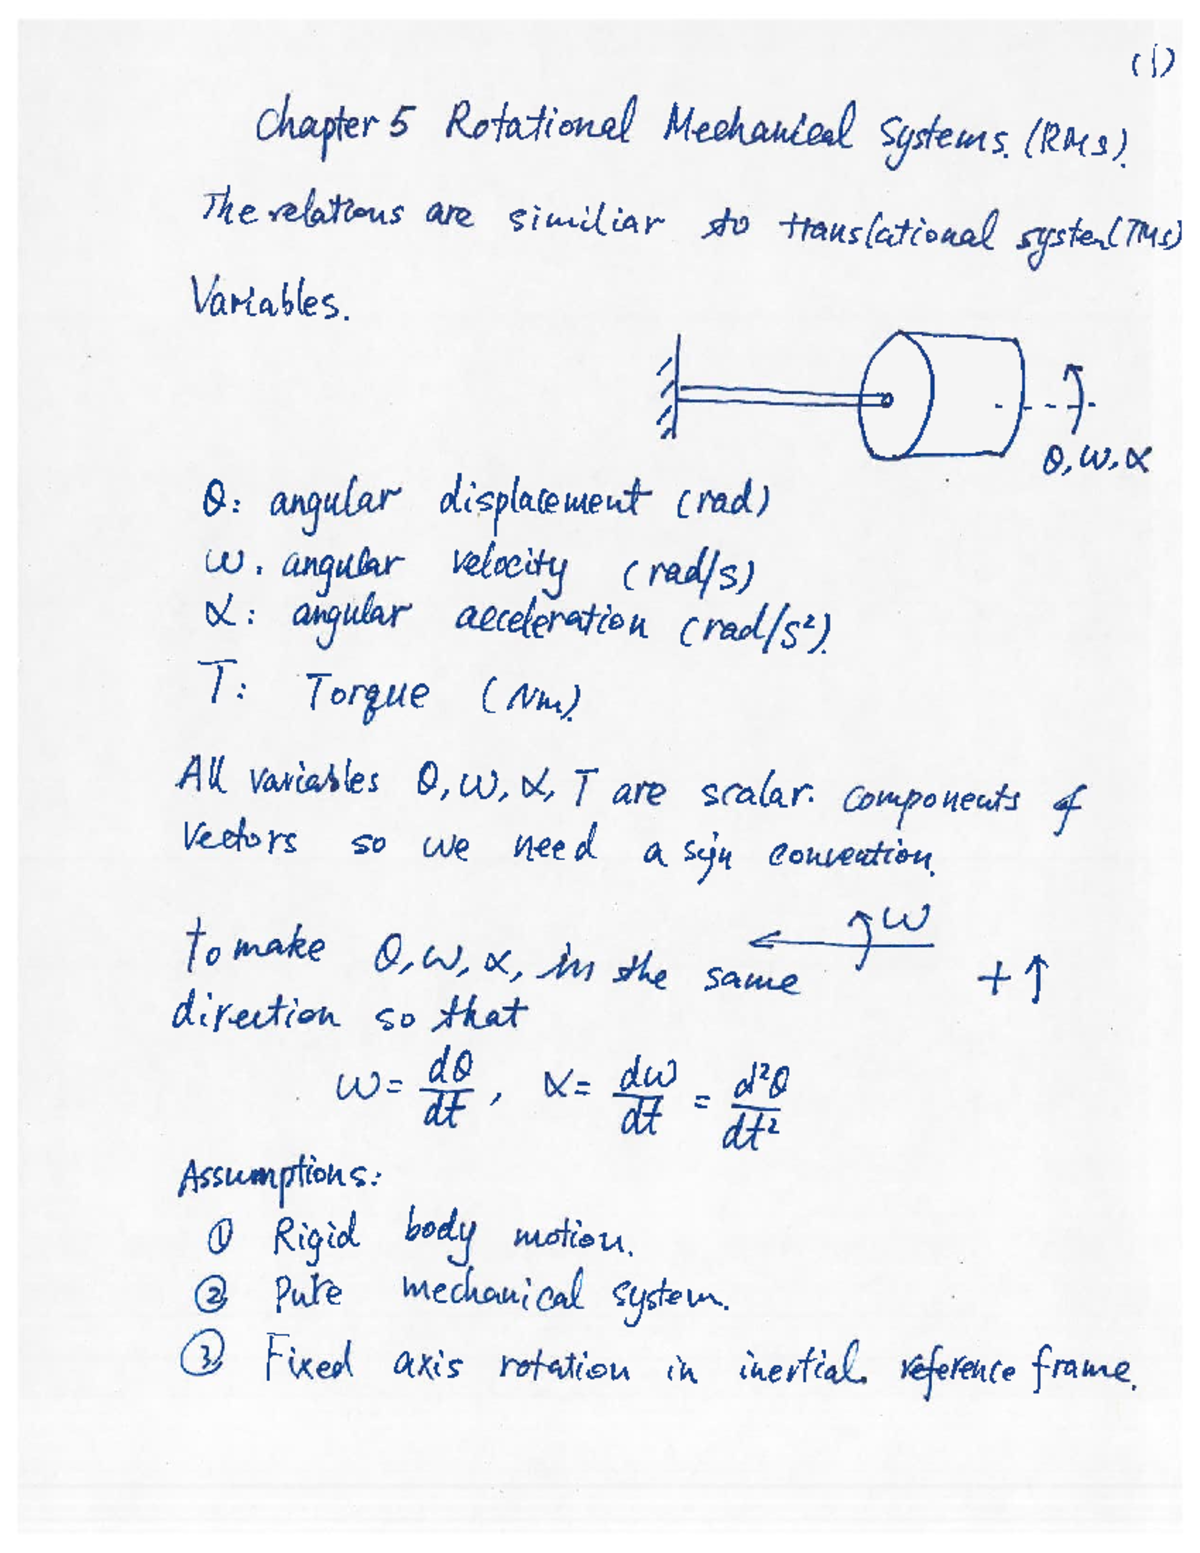 (1)
Chapter 5 Rotational Mechanical Systems. (RMS).
The relations are similiar to translational system (TMS)
Variables.
θ, ω, α
θ: angular displacement (rad)
ω: angular velocity (rad/s)
α: angular acceleration (rad/s²).
T: Torque (Nm).
All variables θ, ω, α, T are scalar. components of
Vectors so we need a sign convention.
ω
To make θ, ω, α, in the same
+↑
direction so that
ω = dθ/dt, α = dω/dt = d²θ/dt²
Assumptions:
① Rigid body motion.
② Pure mechanical system.
③ Fixed axis rotation in inertial. reference frame.